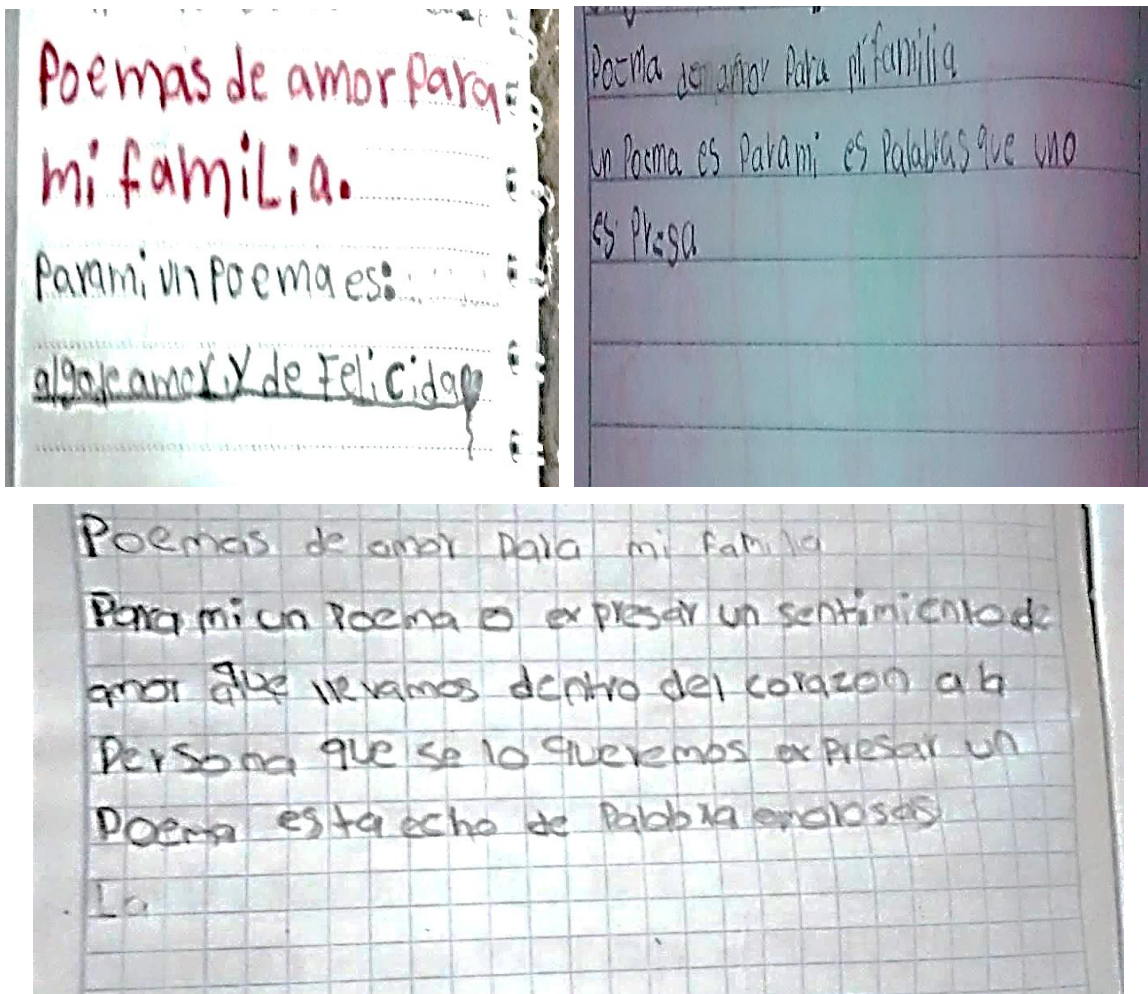 Poemas de amor Para
mi familia.
Parami un Poema es:
algo de amor y de Felicidad
Poema de amor Para mi familia
un Poema es Parami es Palabras que uno
es Presa
Poemas de amor para mi familia
Para mi un Poema o expresar un sentimiento de
amor que llevamos dentro del corazon a la
Persona que se lo queremos expresar un
Poema esta echo de Palabra
La